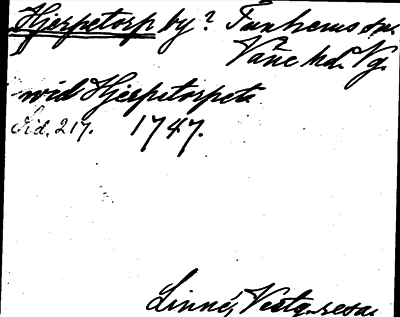 Hjerpetorp by? Fuxherns sn.
Väne hd. Vg.
wid Hjerpetorpet
Sid. 217. 1747.
Linné, Vestg. resa